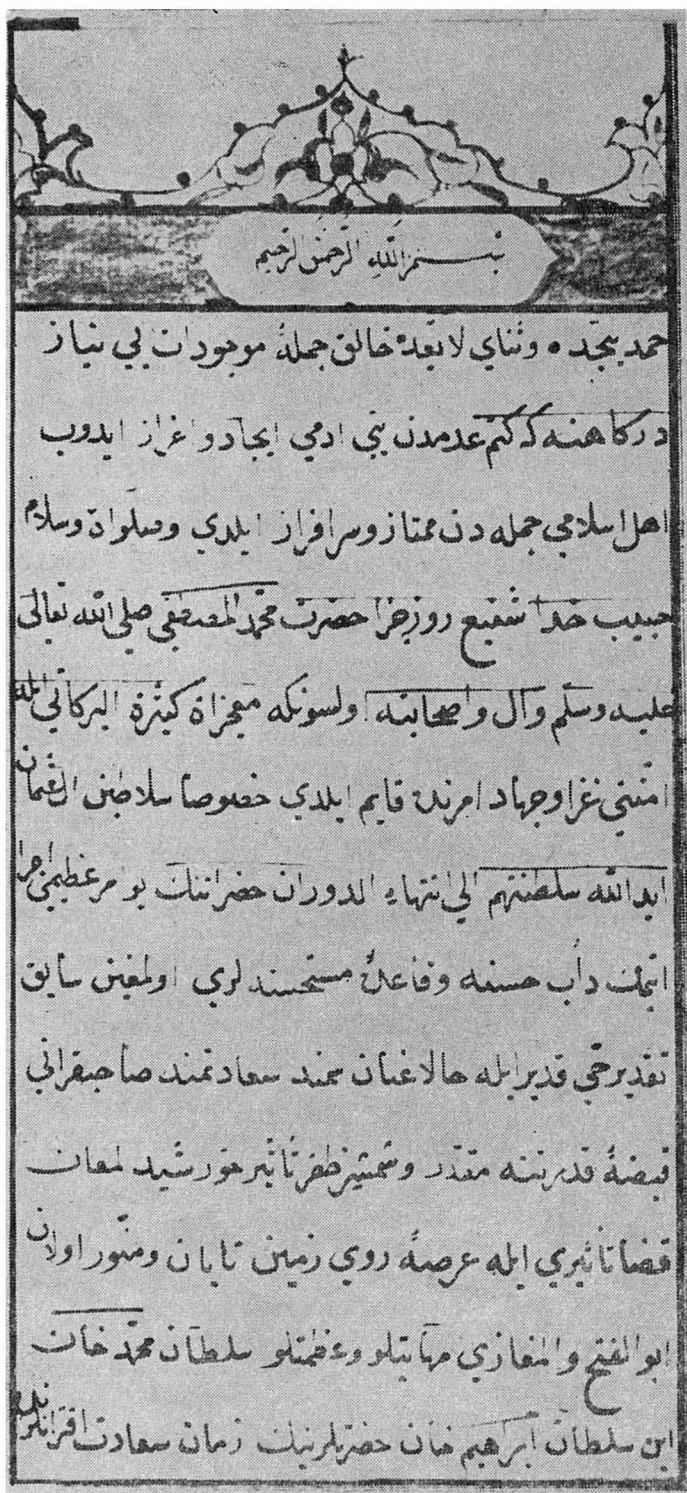 بسم الله الرحمن الرحيم
حمد بيحد ه وثناي لا يعده خالق جملۀ موجودات بي نياز
دركاهنه كه كتم عدمدن بني ادمي ايجاد و اعزاز ايدوب
اهل اسلامي جمله دن ممتاز و سرافراز ايلدي وصلواة وسلام
حبيب خدا شفيع روز جزا حضرت محمد المصطفي صلي الله تعالى
عليه وسلم وآل واصحابنه اولسونكه معجزاة كثيرة البركاتي ايله
امتني غزا وجهاد امرنده قايم ايلدي خصوصا سلاطين ال عثمان
ايد الله سلطنتهم الي انتهاء الدوران حضراتنك بو امر عظيمي اجرا
اتمك دأب حسنه وقاعدۀ مستحسنه لري اولمغين سابق
تقدير حي قدير ايله حالا عنان سمند سعادتمند صاحبقراني
قبضۀ قدرتنه مقدر وشمشير ظفر تأثير خورشيد لمعان
قضا تأثيري ايله عرصۀ روي زمين تابان ومنور اولان
ابو الفتح والمغازي مهابتلو وعظمتلو سلطان محمد خان
ابن سلطان ابراهيم خان حضرتلرينك زمان سعادت اقترانلرنده